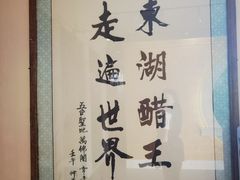 東湖醋王
走遍世界
五台聖地萬佛閣